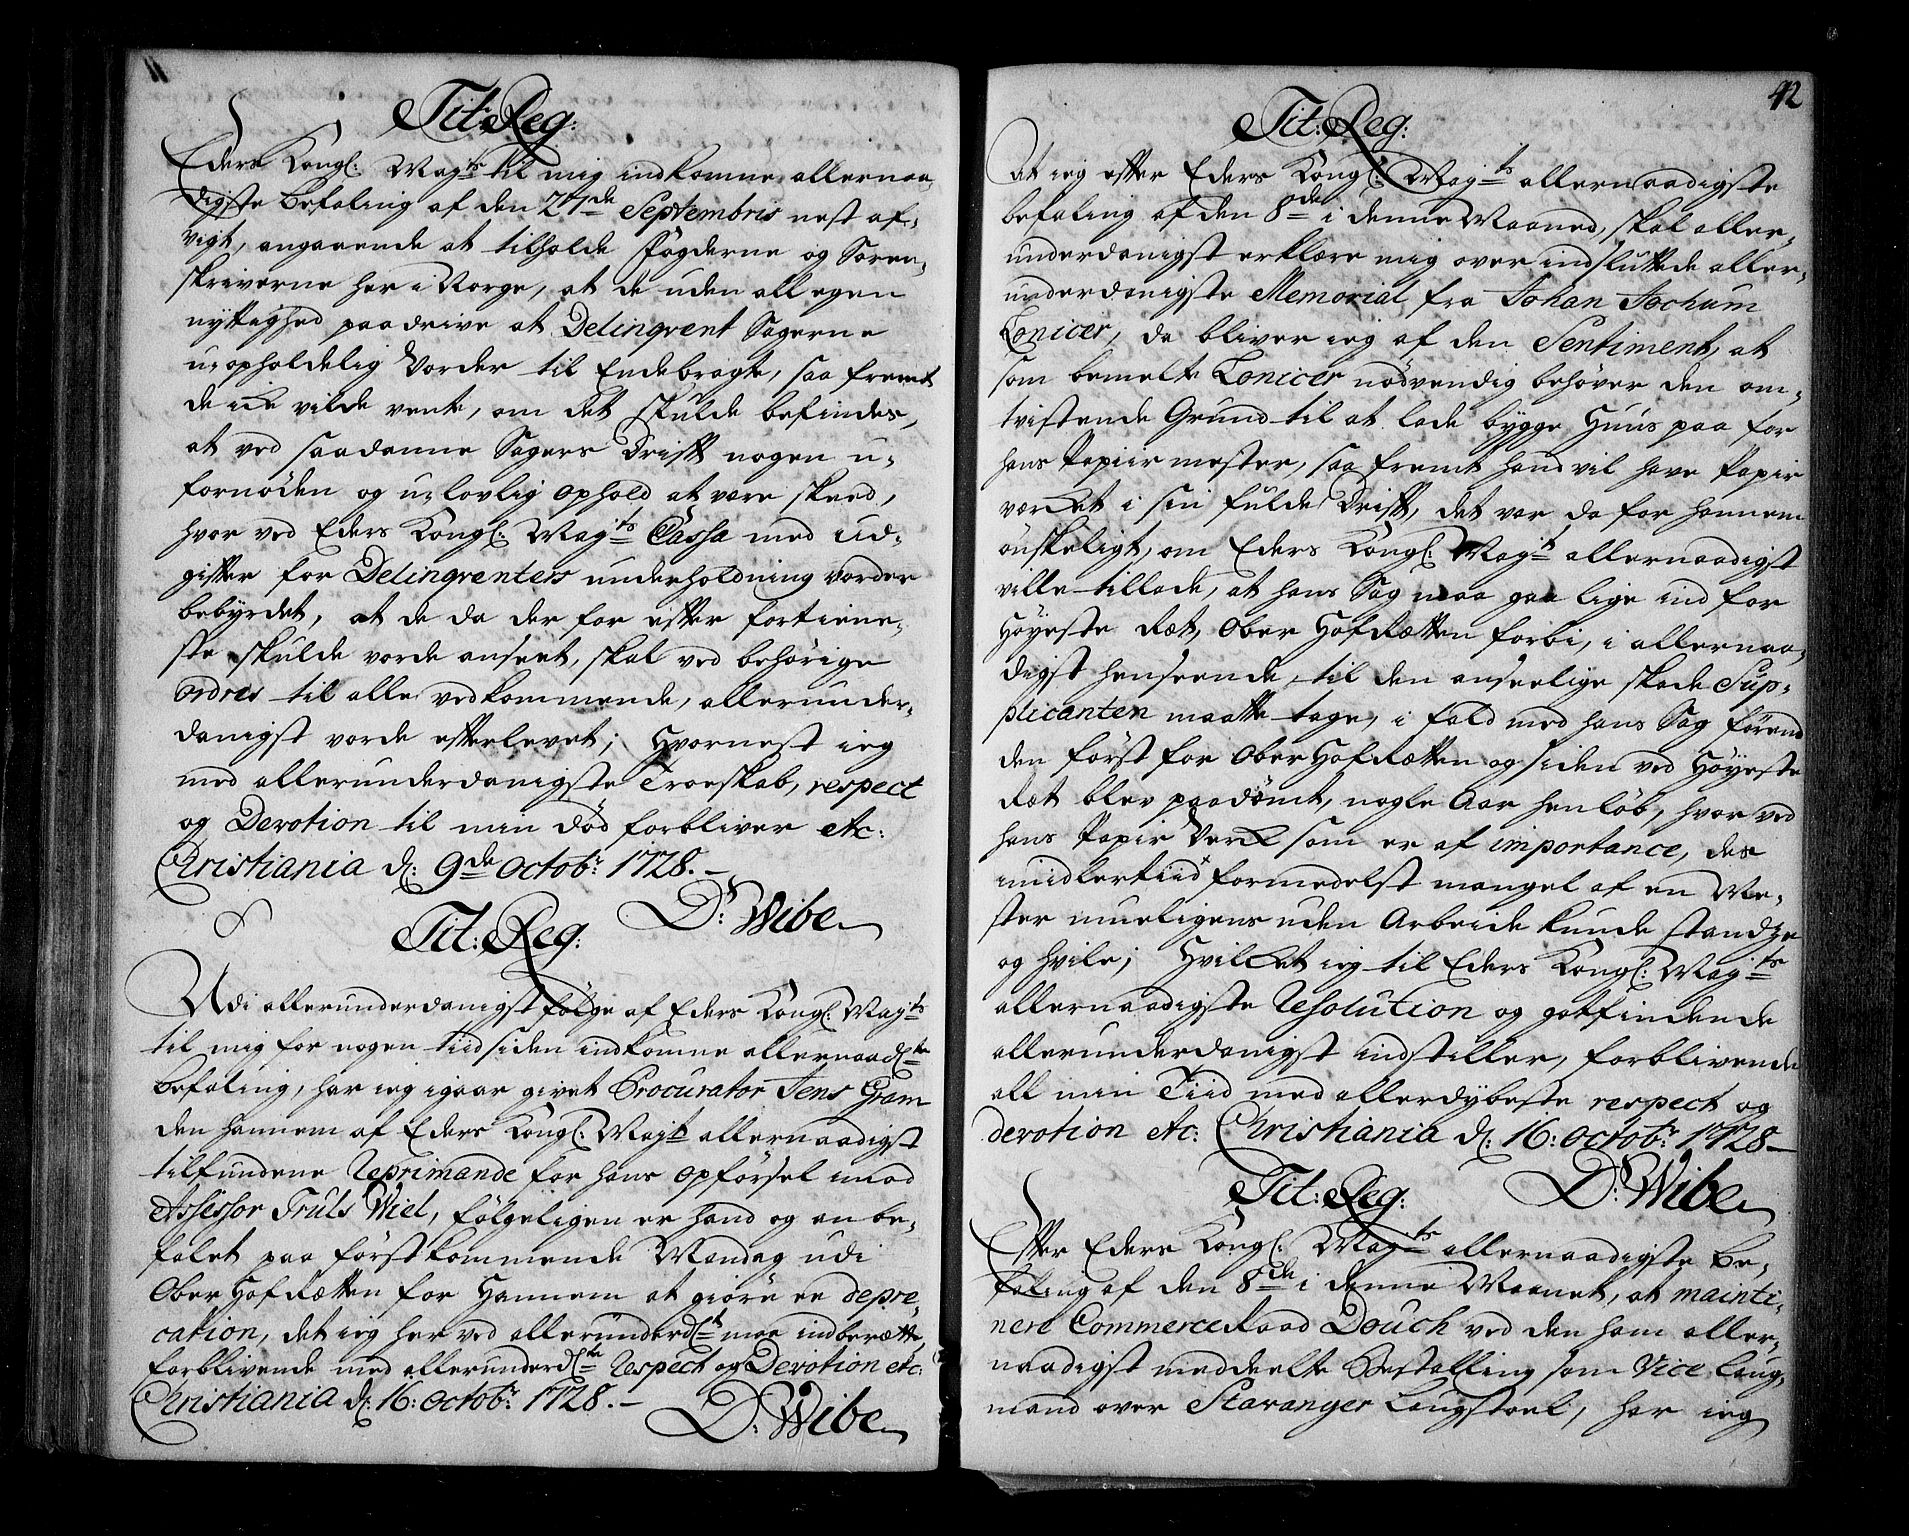 Tit: Reg:
Eders Kongl: Maj:ts til mig indkomne allernaa-
digste befaling af den 27de Septembris nest af-
vigt, angaaende at tilholde fogderne og Soren-
skriverne her i Norge, at de uden all egen
nyttighed paadrive at Delinqvent Sagerne
u-opholdelig vorder til Endebragte, saa fremt
de icke vilde vente, om det skulde befindes,
at ved saadanne Sagers Drift nogen u-
fornøden og u-lovlig ophold at være skeed,
hvor ved Eders Kongl: Maj:ts Cassa med ud-
gifter for Delinqventers underholdning vorder
bebyrdet, at de da der for efter fortiene-
ste skulde vorde anseet, skal ved behørige
ordres til alle vedkommende, allerunder-
danigst vorde efterlevet; Hvornest ieg
med allerunderdanigste Troeskab, respect
og Devotion til min død forbliver etc:
Christiania d: 9de Octob:r 1728.-
D: Wibe
Tit: Reg:
Udi allerunderdanigst følge af Eders Kongl: Maj:ts
til mig for nogen tiid siden indkomne allernaad:ste
befaling, har ieg igaar givet Procurator Jens Gram
den hannem af Eders Kongl: Maj:t allernaadigst
tilfundene Reprimande for hans opførsel imod
Assessor Truls Wiel, følgeligen er hand og anbe-
falet paa førstkommende Mandag udi
Ober Hof Rætten for Hannem at giøre en depre-
cation, det ieg her ved allerunderd:st maa indberette,
forblivende med allerunderd:ste Respect og Devotion etc:
Christiania d: 16: Octob:r 1728.-
D: Wibe
42
Tit: Reg:
At ieg efter Eders Kongl: Maj:ts allernaadigste
befaling af den 8de i denne Maaned, skal aller-
underdanigst erklære mig over indsluttede aller-
underdanigste Memorial fra Johan Jochum
Lonicer, da bliver ieg af den Sentiment, at
som bemelte Lonicer nødvendig behøver den om-
tvistende Grund til at lade bygge Huus paa for
hans Papiir mester, saa fremt hand vil have Papir
værcket i sin fulde Drift, det var da for hannem
ønskeligt, om Eders Kongl: Maj:t allernaadigst
ville tillade, at hans Sag maa gaa lige ind for
Høyeste Ræt, Ober Hof Rætten forbi, i allernaa-
digst henseende til den anseelige skade Sup-
plicanten maatte tage, i fald med hans Sag førend
den først for Ober Hof Rætten og siden ved Høyeste
Ræt blev paadømt, nogle Aar henløb, hvor ved
hans Papir Verck som er af importance, des
imidlertiid formedelst mangel af en Me-
ster mueligens uden Arbeide kunde standze
og hvile; Hvilcket ieg til Eders Kongl: Maj:ts
allernaadigste Resolution og gotfindende
allerunderdanigst indstiller, forblivende
all min Tiid med allerdybeste respect og
devotion etc: Christiania d: 16: Octob:r 1728-
D: Wibe
Tit: Reg:
Efter Eders Kongl: Maj:ts allernaadigste be-
faling af den 8de i denne Maanet, at mainti-
nere Commerce Raad Douch ved den ham aller-
naadigst meddeelte Bestalling som Vice Laug-
mand over Stavanger Laugstoel, har ieg